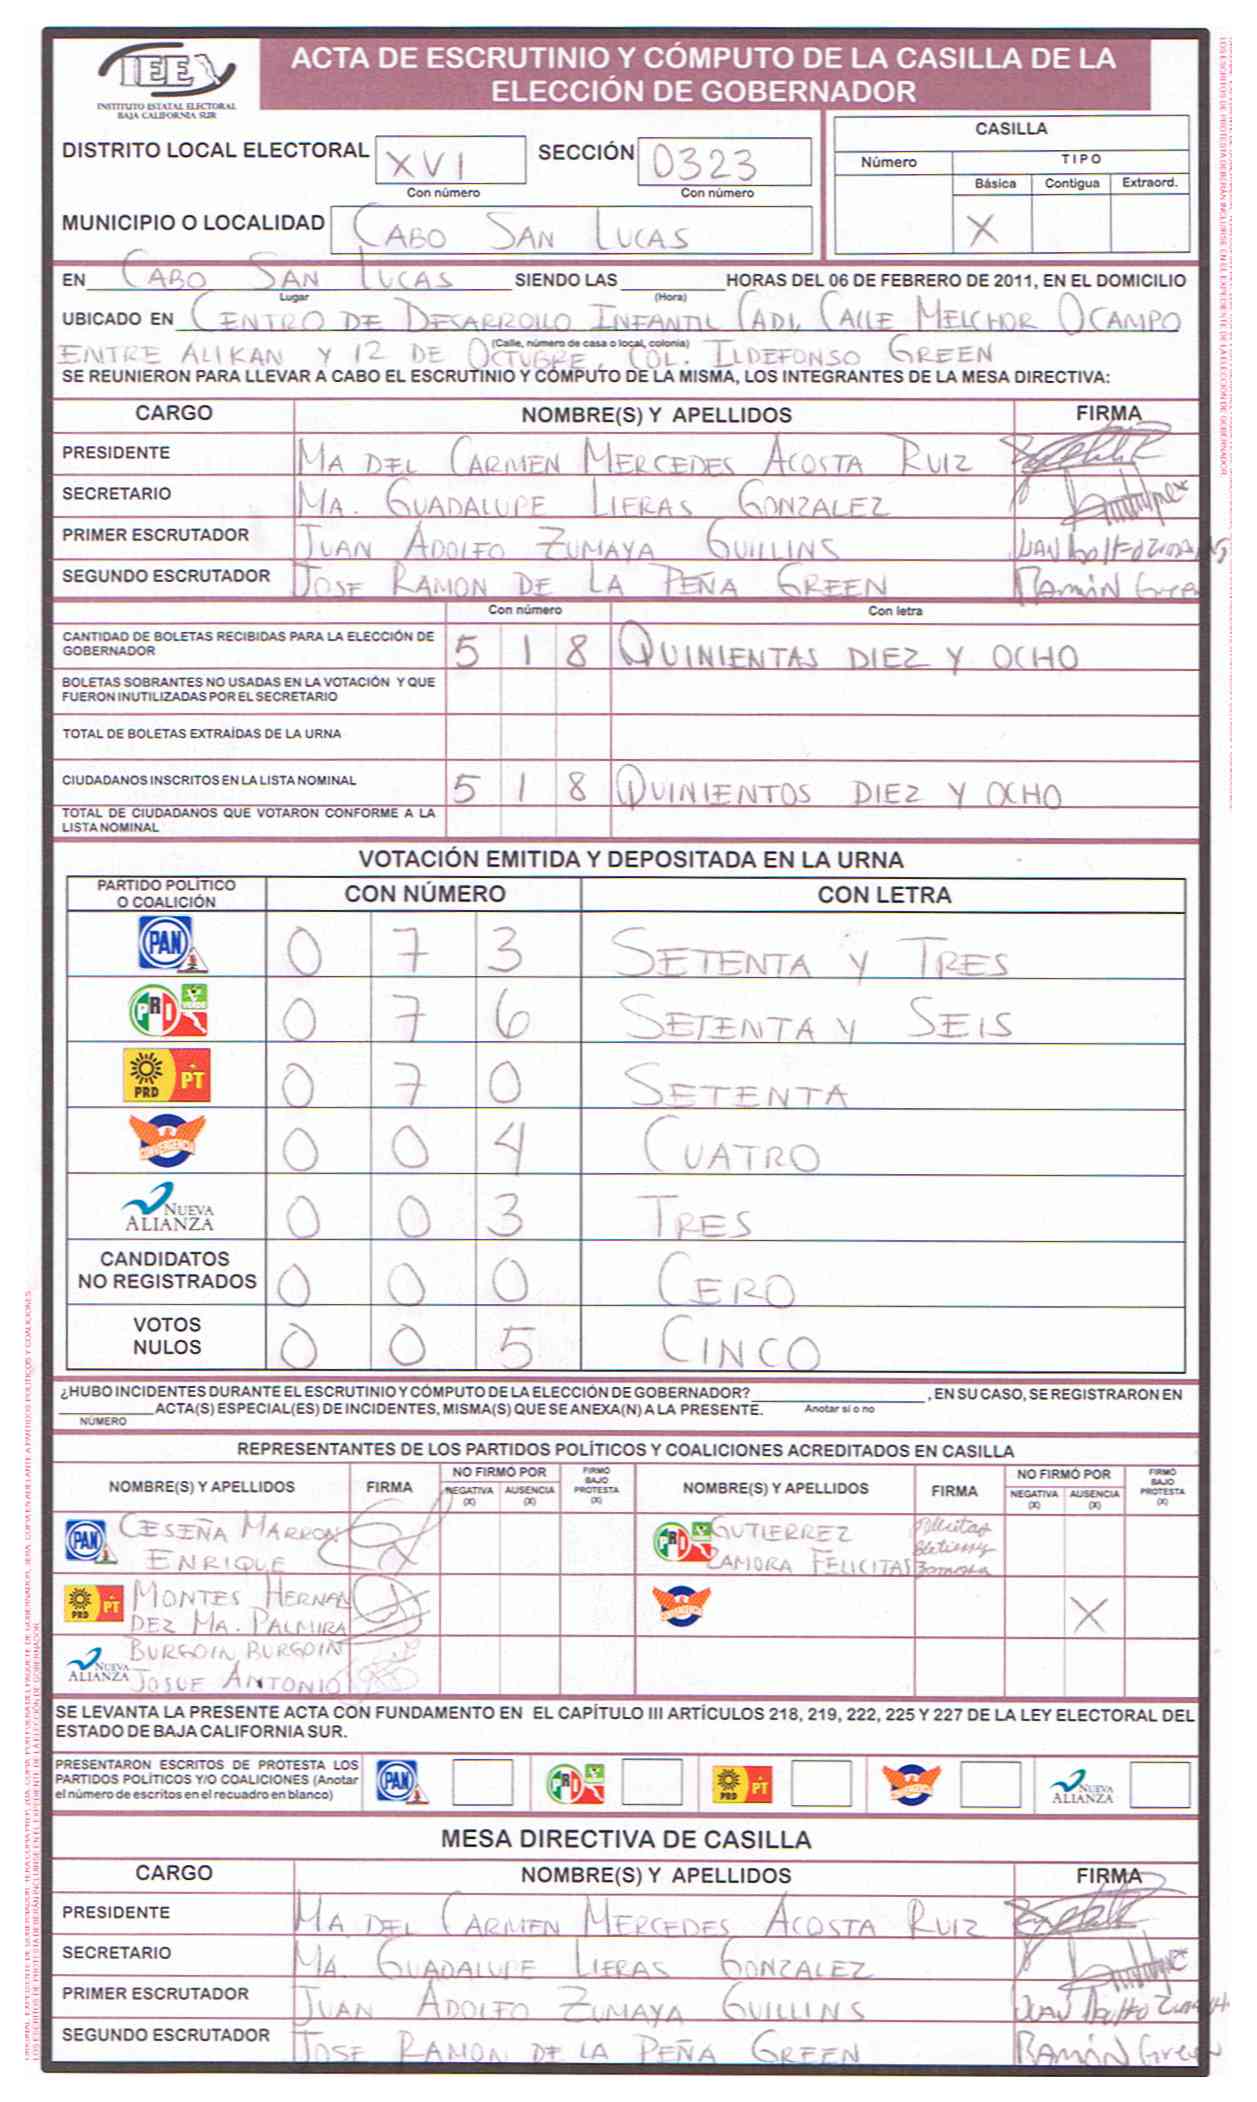 IEE
INSTITUTO ESTATAL ELECTORAL
BAJA CALIFORNIA SUR
ACTA DE ESCRUTINIO Y CÓMPUTO DE LA CASILLA DE LA
ELECCIÓN DE GOBERNADOR
DISTRITO LOCAL ELECTORAL XVI SECCIÓN 0323
Con número Con número
MUNICIPIO O LOCALIDAD CABO SAN LUCAS
CASILLA
Número TIPO
Básica Contigua Extraord.
X
EN CABO SAN LUCAS SIENDO LAS HORAS DEL 06 DE FEBRERO DE 2011, EN EL DOMICILIO
Lugar (Hora)
UBICADO EN CENTRO DE DESARROLLO INFANTIL CADI, CALLE MELCHOR OCAMPO
(Calle, número de casa o local, colonia)
ENTRE ALIKAN Y 12 DE OCTUBRE, COL. ILDEFONSO GREEN
SE REUNIERON PARA LLEVAR A CABO EL ESCRUTINIO Y CÓMPUTO DE LA MISMA, LOS INTEGRANTES DE LA MESA DIRECTIVA:
CARGO NOMBRE(S) Y APELLIDOS FIRMA
PRESIDENTE MA DEL CARMEN MERCEDES ACOSTA RUIZ
SECRETARIO MA. GUADALUPE LIERAS GONZALEZ
PRIMER ESCRUTADOR JUAN ADOLFO ZUMAYA GUILLINS
SEGUNDO ESCRUTADOR JOSE RAMON DE LA PEÑA GREEN Ramón Green
Con número Con letra
CANTIDAD DE BOLETAS RECIBIDAS PARA LA ELECCIÓN DE
GOBERNADOR 5 1 8 QUINIENTAS DIEZ Y OCHO
BOLETAS SOBRANTES NO USADAS EN LA VOTACIÓN Y QUE
FUERON INUTILIZADAS POR EL SECRETARIO
TOTAL DE BOLETAS EXTRAÍDAS DE LA URNA
CIUDADANOS INSCRITOS EN LA LISTA NOMINAL 5 1 8 QUINIENTOS DIEZ Y OCHO
TOTAL DE CIUDADANOS QUE VOTARON CONFORME A LA
LISTA NOMINAL
VOTACIÓN EMITIDA Y DEPOSITADA EN LA URNA
PARTIDO POLÍTICO
O COALICIÓN CON NÚMERO CON LETRA
PAN 0 7 3 SETENTA Y TRES
PRI VERDE 0 7 6 SETENTA Y SEIS
PRD PT 0 7 0 SETENTA
CONVERGENCIA 0 0 4 CUATRO
NUEVA ALIANZA 0 0 3 TRES
CANDIDATOS
NO REGISTRADOS 0 0 0 CERO
VOTOS
NULOS 0 0 5 CINCO
¿HUBO INCIDENTES DURANTE EL ESCRUTINIO Y CÓMPUTO DE LA ELECCIÓN DE GOBERNADOR? , EN SU CASO, SE REGISTRARON EN
ACTA(S) ESPECIAL(ES) DE INCIDENTES, MISMA(S) QUE SE ANEXA(N) A LA PRESENTE. Anotar sí o no
NÚMERO
REPRESENTANTES DE LOS PARTIDOS POLÍTICOS Y COALICIONES ACREDITADOS EN CASILLA
NOMBRE(S) Y APELLIDOS FIRMA NO FIRMÓ POR NEGATIVA (X) AUSENCIA (X) FIRMÓ BAJO PROTESTA (X) NOMBRE(S) Y APELLIDOS FIRMA NO FIRMÓ POR NEGATIVA (X) AUSENCIA (X) FIRMÓ BAJO PROTESTA (X)
PAN CESEÑA MARRON PRI GUTIERREZ
ENRIQUE ZAMORA FELICITAS
PRD PT MONTES HERNAN X
DEZ MA. PALMIRA
NUEVA ALIANZA BURGOIN BURGOIN
JOSUE ANTONIO
SE LEVANTA LA PRESENTE ACTA CON FUNDAMENTO EN EL CAPÍTULO III ARTÍCULOS 218, 219, 222, 225 Y 227 DE LA LEY ELECTORAL DEL
ESTADO DE BAJA CALIFORNIA SUR.
PRESENTARON ESCRITOS DE PROTESTA LOS
PARTIDOS POLÍTICOS Y/O COALICIONES (Anotar
el número de escritos en el recuadro en blanco) PAN PRI PRD PT NUEVA ALIANZA
MESA DIRECTIVA DE CASILLA
CARGO NOMBRE(S) Y APELLIDOS FIRMA
PRESIDENTE MA DEL CARMEN MERCEDES ACOSTA RUIZ
SECRETARIO MA. GUADALUPE LIERAS GONZALEZ
PRIMER ESCRUTADOR JUAN ADOLFO ZUMAYA GUILLINS
SEGUNDO ESCRUTADOR JOSE RAMON DE LA PEÑA GREEN Ramón Green